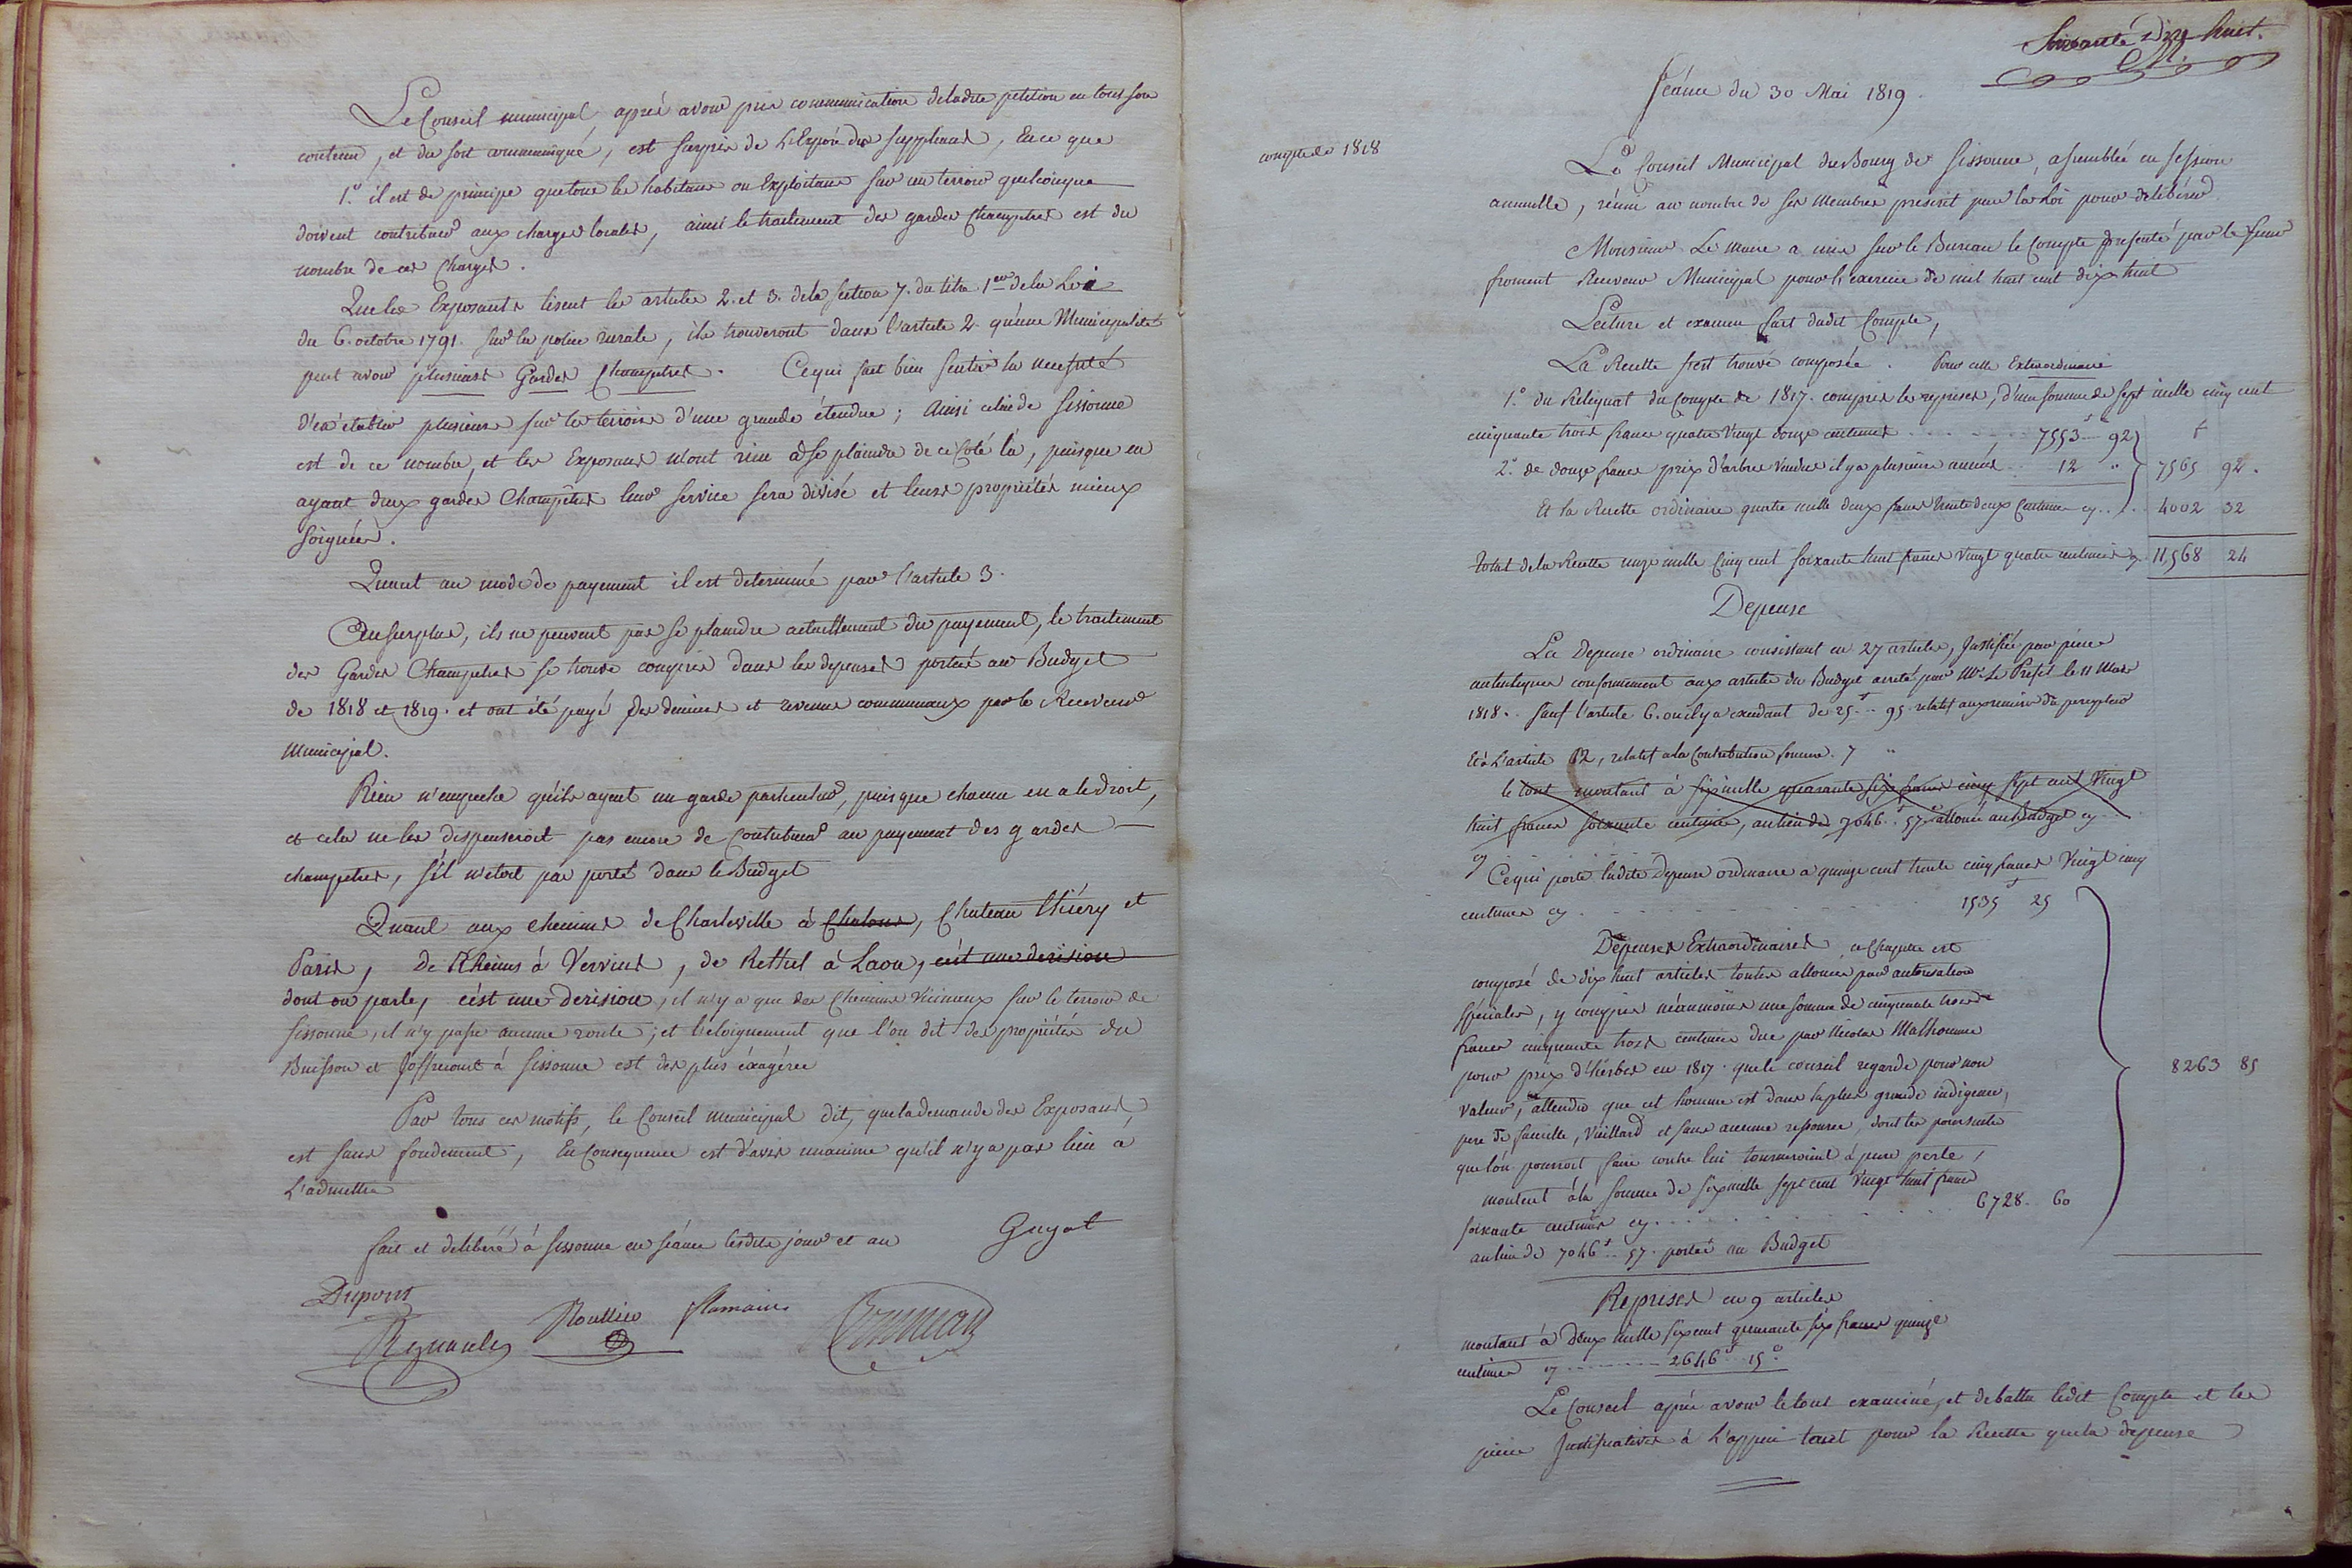 Le Conseil municipal après avoir pris communication de ladite petition en tout son
contenu, et du soit communiqué, est surpris de L'Exposé des supplians, En ce que
1.° il est de principe que tous les habitans ou Exploitans sur un terroir quelconque
doivent contribuer aux charges locales, ainsi le traitement des gardes Champetres est du
nombre de ces Charges.
Que les Exposants lisent les articles 2. et 3. de la section 7. du titre 1er de la Loi
du 6. octobre 1791. sur la police rurale, ils trouveront dans l'article 2. qu'une Municipalité
peut avoir plusieurs Gardes Champêtres. Ce qui fait bien sentir la necessité
d'en établir plusieurs sur les terroirs d'une grande étendue; Ainsi celui de Sissonne
est de ce nombre, et les Exposans n'ont rien a se plaindre de ce Coté là, puisque en
ayant deux gardes Champêtres leur service sera divisé et leurs propriétés mieux
soignées.
Quant au mode de payement il est determiné par l'article 3.
Au surplus, ils ne peuvent pas se plaindre actuellement du payement, le traitement
des Gardes Champetres se trouve compris dans les depenses portées au Budget
de 1818 et 1819. et ont été payé des deniers et revenus communaux par le Receveur
Municipal.
Rien n'empeche qu'ils ayent un garde particulier, puis que chacun en a le droit,
et cela ne les dispenseroit pas encore de Contribuer au payement des gardes
champetres, s'il n'etoit pas porté dans le Budget
Quant aux chemins de Charleville à Chalons, Chateau thiery et
Paris, de Rheims à Vervins, de Rethel à Laon, c'est une derision
dont on parle, c'est une derision, il n'y a que des Chemins Vicinaux sur le terroir de
Sissonne, il n'y passe aucune route; et l'eloignement que l'on dit des propriétés du
Buisson et Joffrecourt à Sissonne est des plus éxagérée
Par tous ces motifs, le Conseil municipal dit, que la demande des Exposans
est sans fondement, En Consequence est d'avis unanime qu'il n'y a pas lieu à
L'admettre
fait et deliberé à Sissonne en séance lesdits jour et an Guyot
Dupont
Regnault Roullier
Soixante Dix huit.
Séance du 30 Mai 1819.
compte de 1818
Le Conseil Municipal du Bourg de Sissonne, assemblée en session
annuelle, réuni au nombre de ses Membres prescrit par la Loi pour délibérer.
Monsieur Le Maire a mis sur le Bureau le Compte présenté par le sieur
froment Receveur Municipal pour l'exercice de mil huit cent dix huit
Lecture et examen fait dudit Compte,
La Recette s'est trouvé composée. Pour celle Extraordinaire
1.° du Reliquat du Compte de 1817. compris les reprises, d'une somme de sept mille cinq cent
cinquante trois francs quatre Vingt douze centimes . . . . 7553f 92c
2.° de douze francs prix d'arbres Vendus il y a plusieurs années . . 12 " 7565 92.
Et la Recette ordinaire quatre mille deux francs trente deux Centimes cy . . . 4002 32
total de la Recette onze mille Cinq cent soixante huit francs Vingt quatre centimes cy 11,568 24
Depense
La Depense ordinaire consistant en 27 articles, Justifiée par pieces
autentiques conformement aux articles du Budget arreté par Mr Le Prefet le 11 Mars
1818. . sauf l'article 6. ou il y a excedant de 25.f 95. relatif aux remises du percepteur
Et à L'article 12, relatif a la Contribution fonciere. 7 "
le tout montant à six mille quarante six francs cinq sept cent Vingt
huit francs soixante centimes, au lieu de 7046.f 57.c alloués au Budget cy
cy Ce qui porte ladite Depense ordinaire a quinze cent trente cinq francs Vingt cinq
centimes cy . . . . 1535f 25
Dépenses Extraordinaires, ce Chapitre est
composé de dix huit articles toutes allouées par autorisation
spéciales, y compris néanmoins une somme de cinquante trois
francs cinquante trois centimes due par Nicolas Malhomme
pour prix d'herbes en 1817. que le conseil regarde pour non
Valeur, attendu que cet homme est dans la plus grande indigence,
pere de famille, Vieillard et sans aucune ressource, dont les poursuites
que l'on pourroit faire contre lui tourneroient à pure perte, 8263 85
montent à la somme de six mille sept cent Vingt huit francs
soixante centimes cy . . . . 6728. 60
au lieu de 7046f 57. portés au Budget
Reprises en 9 articles
montant à Deux mille six cent quarante six francs quinze
centimes cy . . . . 2646f 15c
Le Conseil après avoir le tout examiné, et debattu ledit Compte et les
pieces Justificatives à L'appui tant pour la Recette que la depense